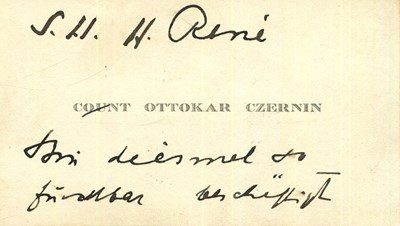 S. H. H. René
COUNT OTTOKAR CZERNIN
Bin diesmal so
furchtbar beschäftigt